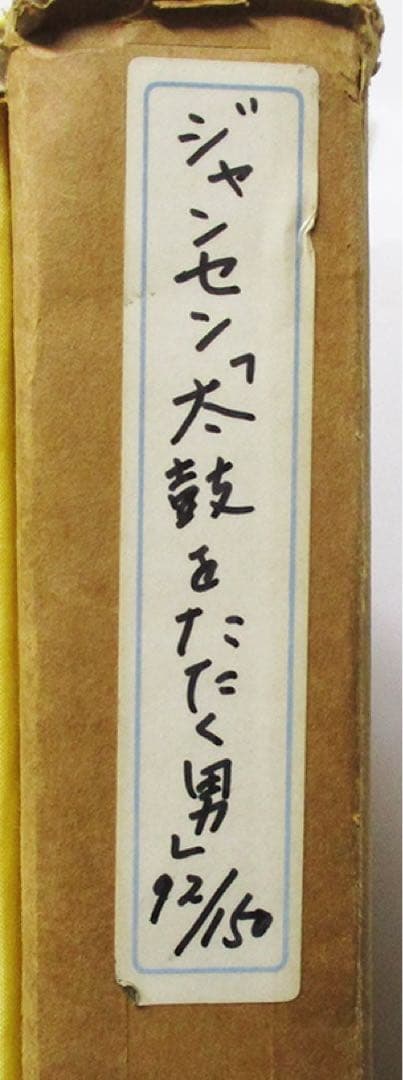 ジャンセン「太鼓をたたく男」92/150